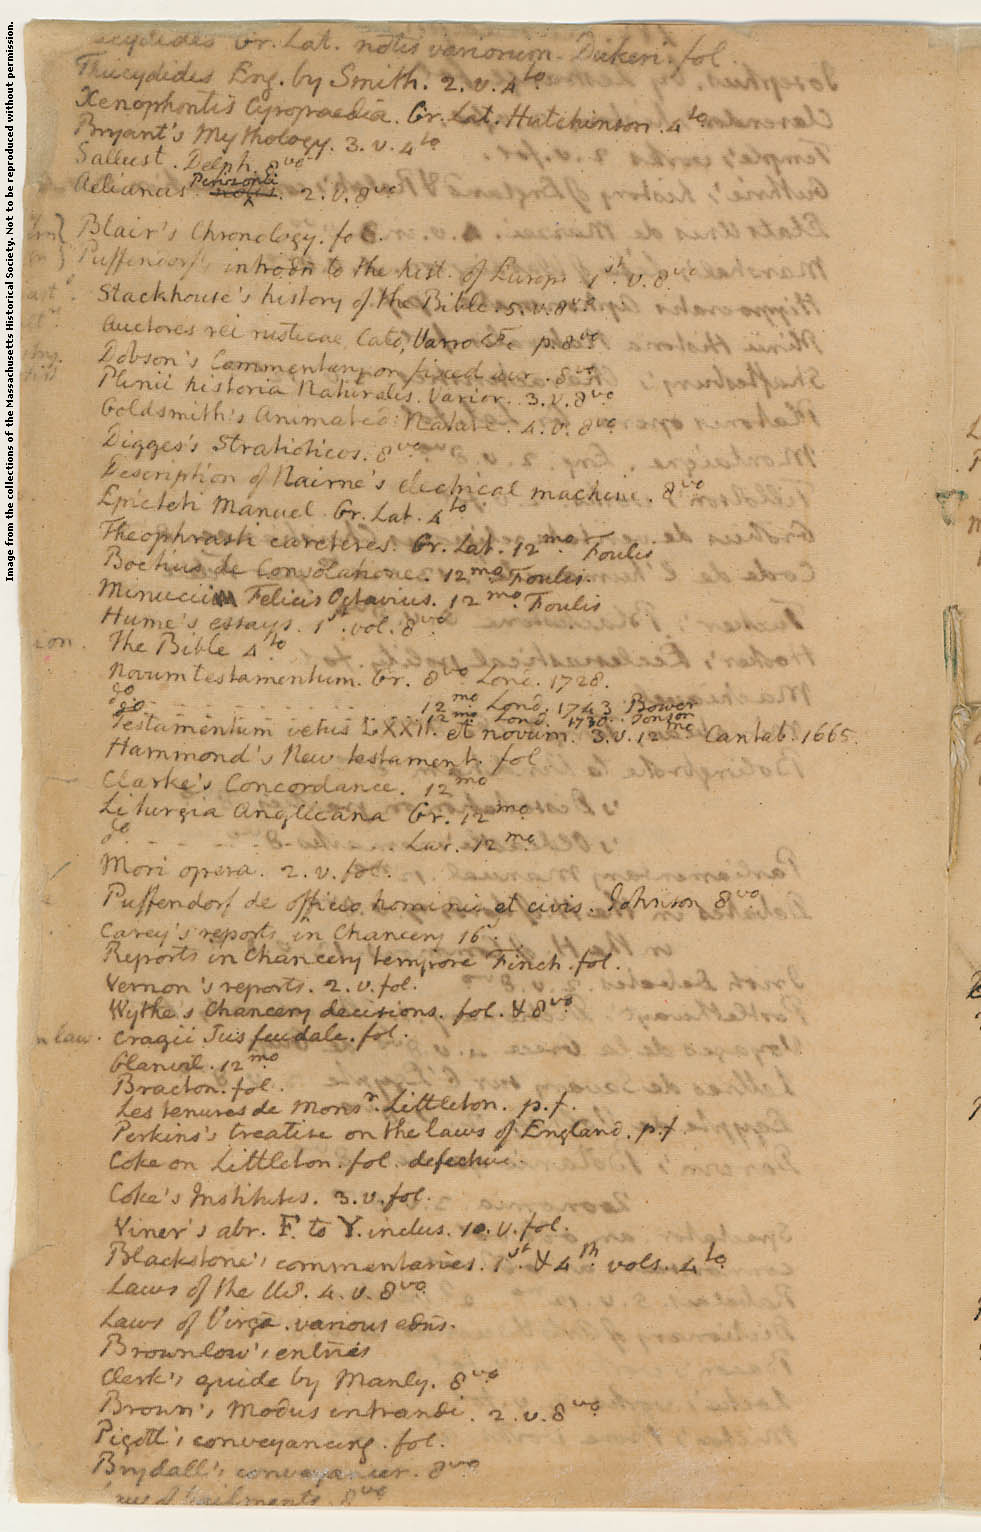 Image from the collections of the Massachusetts Historical Society. Not to be reproduced without permission.
Gr. Lat. notis variorum. Dukeri. fol.
Thucydides Eng. by Smith. 2. v. 4to.
Xenophontis Cyropaedia. Gr. Lat. Hutchinson. 4to
Bryant's Mythology. 3. v. 4to
Sallust. Delph. 8vo
Aelianus Perizonii. 2. v. 8vo
Blair's Chronology. fol.
Puffendorf's introdn to the hist. of Europe 1st. v. 8vo
Stackhouse's history of the Bible. 5. v. 8vo.
Auctores rei rusticae, Cato, Varro &c. p. 8vo
Dobson's Commentary on fixed air. 8vo
Plinii historia Naturalis. Varior. 3. v. 8vo
Goldsmith's Animated Nature. 4. v. 8vo
Digges's Stratioticos. 8vo
Description of Nairne's electrical machine. 8vo
Epicteti Manuel. Gr. Lat. 4to
Theophrasti caracteres. Gr. Lat. 12mo. Foulis
Boethius de Consolatione. 12mo. Foulis.
Minucii Felicis Octavius. 12mo. Foulis
Hume's essays. 1st. vol. 8vo
ion. the Bible 4to
Novum testamentum. Gr. 8vo Lond. 1728.
do 12mo Lond. 1743 Bowyer
do 12mo Lond. 1730. Tonson
Testamentum vetus LXXII. et novum. 3. v. 12mo Cantab. 1665.
Hammond's New testament. fol
Clarke's Concordance. 12mo
Liturgia Anglicana Gr. 12mo.
do. Lat. 12mo.
Mori opera. 2. v. fol.
Puffendorf de officio hominis et civis. Johnson 8vo
Carey's reports in Chancery 16s.
Reports in Chancery tempore Finch. fol.
Vernon's reports. 2. v. fol.
Wythe's Chancery decisions. fol. & 8vo
law. Cragii Jus feudale. fol.
Glanvil. 12mo
Bracton. fol.
Les tenures de Monsr. Littleton. p. f.
Perkins's treatise on the laws of England. p. f.
Coke on Littleton. fol. defective.
Coke's Institutes. 3. v. fol.
Viner's abr. F. to Y. inclus. 10. v. fol.
Blackstone's commentaries. 1st. & 4th vols. 4to.
Laws of the US. 4. v. 8vo.
Laws of Virga. various edns.
Brownlow's entries
Clerk's guide by Manly. 8vo
Brown's Modus intrandi. 2. v. 8vo
Pigott's conveyancing. fol.
Brydall's conveyancer. 8vo
of bailments. 8vo